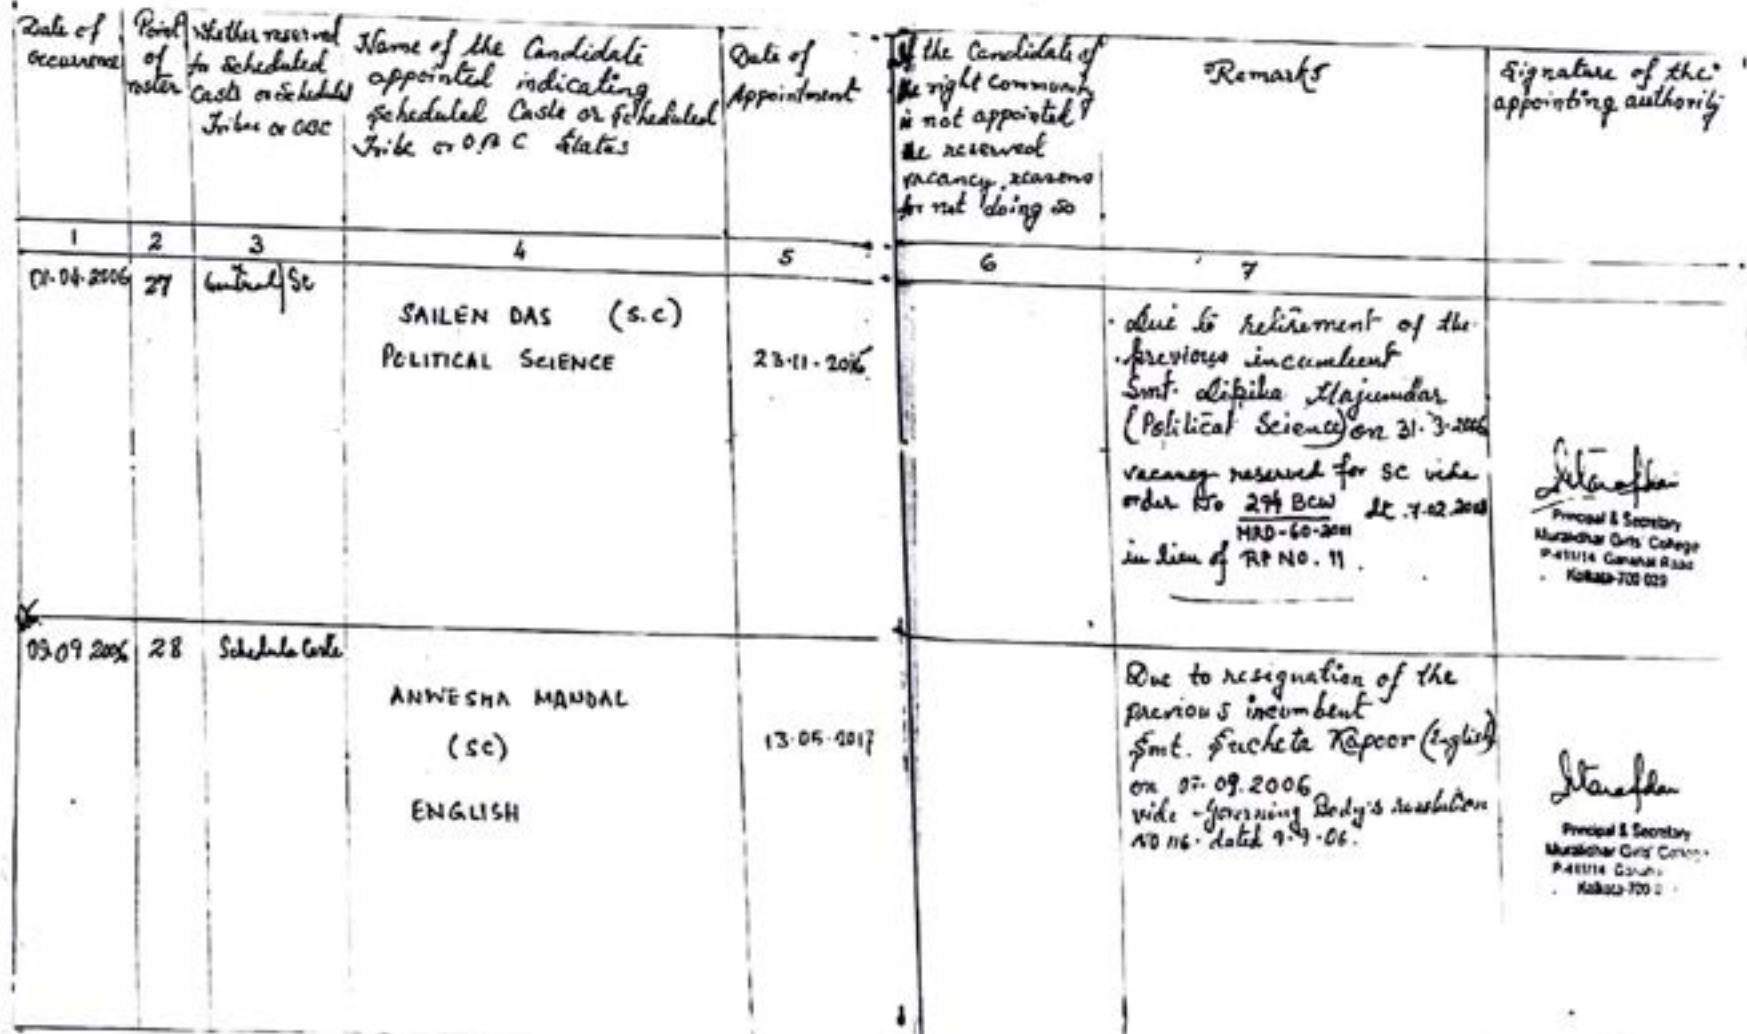 Date of
occurrence
Point
of
roster
Whether reserved
for Scheduled
Casts or Scheduled
Tribes or OBC
Name of the Candidate
appointed indicating
Scheduled Caste or Scheduled
Tribe or O.B C Status
Date of
Appointment
If the Candidate of
the right community
is not appointed
the reserved
vacancy, reasons
for not doing so
Remarks
Signature of the
appointing authority
1
2
3
4
5
6
7
01.04.2006
27
SC
SAILEN DAS (S.C)
POLITICAL SCIENCE
23.11.2016
Due to retirement of the
previous incumbent
Smt. Dipika Majumdar
(Political Science) on 31.3.2006
vacancy reserved for SC vide
order No 294 BCW dt. 7.02.
MRD-60-2001
in lieu of RP NO. 11.
Principal & Secretary
Muralidhar Girls' College
P-411/14 Gariahat Road
Kolkata-700 029
09.09.2006
28
Schedule Caste
ANWESHA MANDAL
(SC)
ENGLISH
13.05.2017
Due to resignation of the
previous incumbent
Smt. Sucheta Kapoor (English)
on 09.2006
vide Governing Body's resolution
NO 116. dated 9.9.06.
Principal & Secretary
Muralidhar Girls' College
P-411/14
Kolkata-700